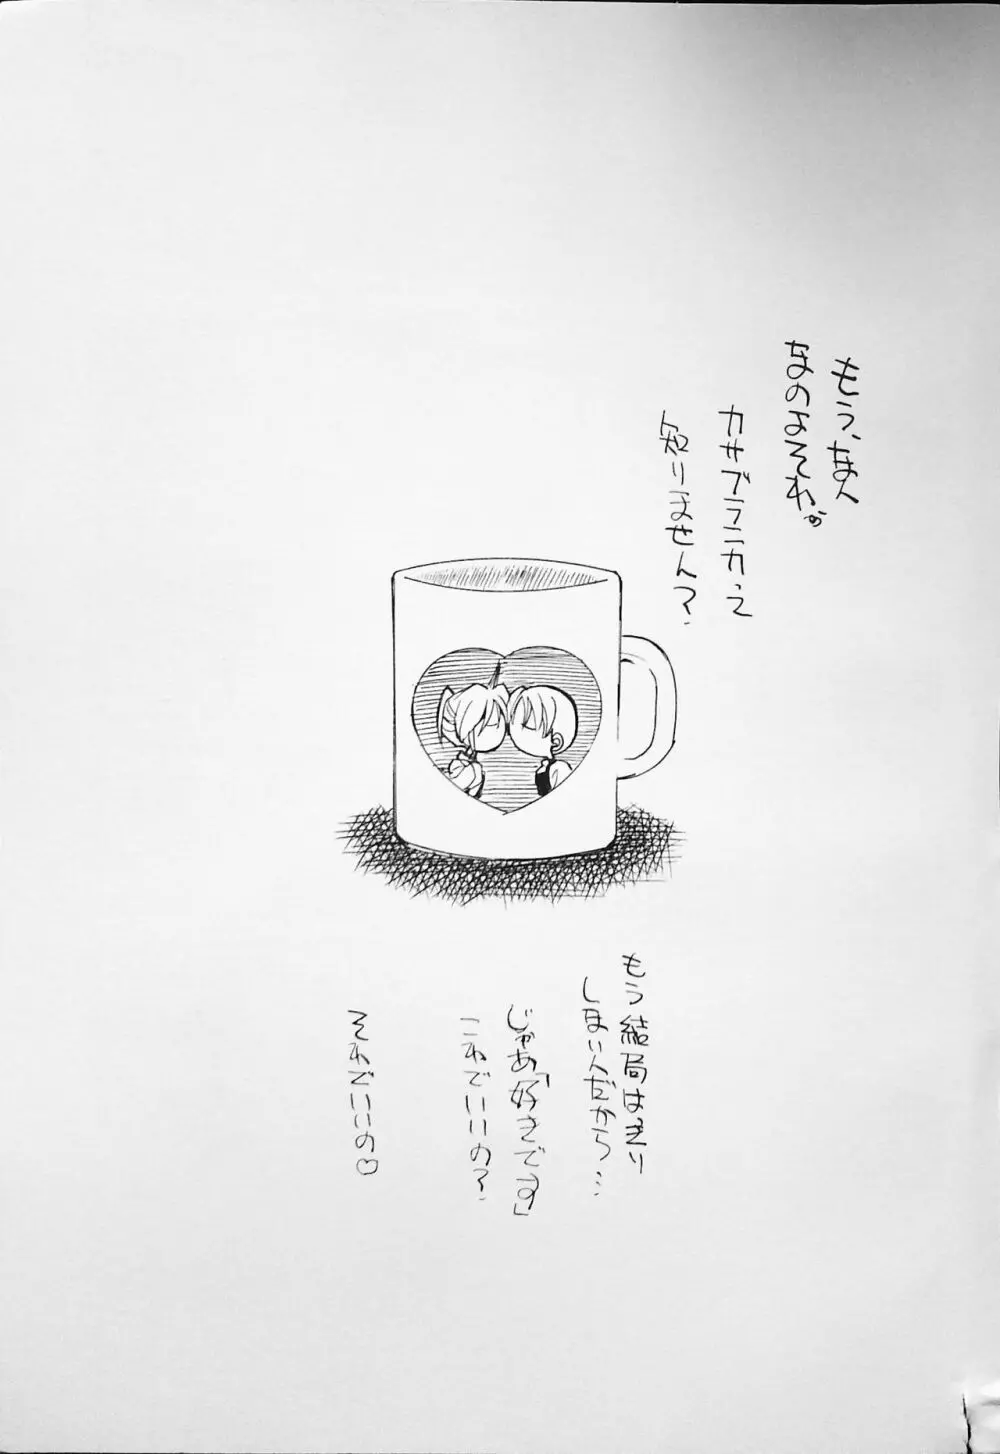 もう、なん
なのよそれぉ
カサブランカって
知りません?
もう結局はぎり
しまいんだから…
じゃあ「好きです」
これでいいの?
それでいいの♡